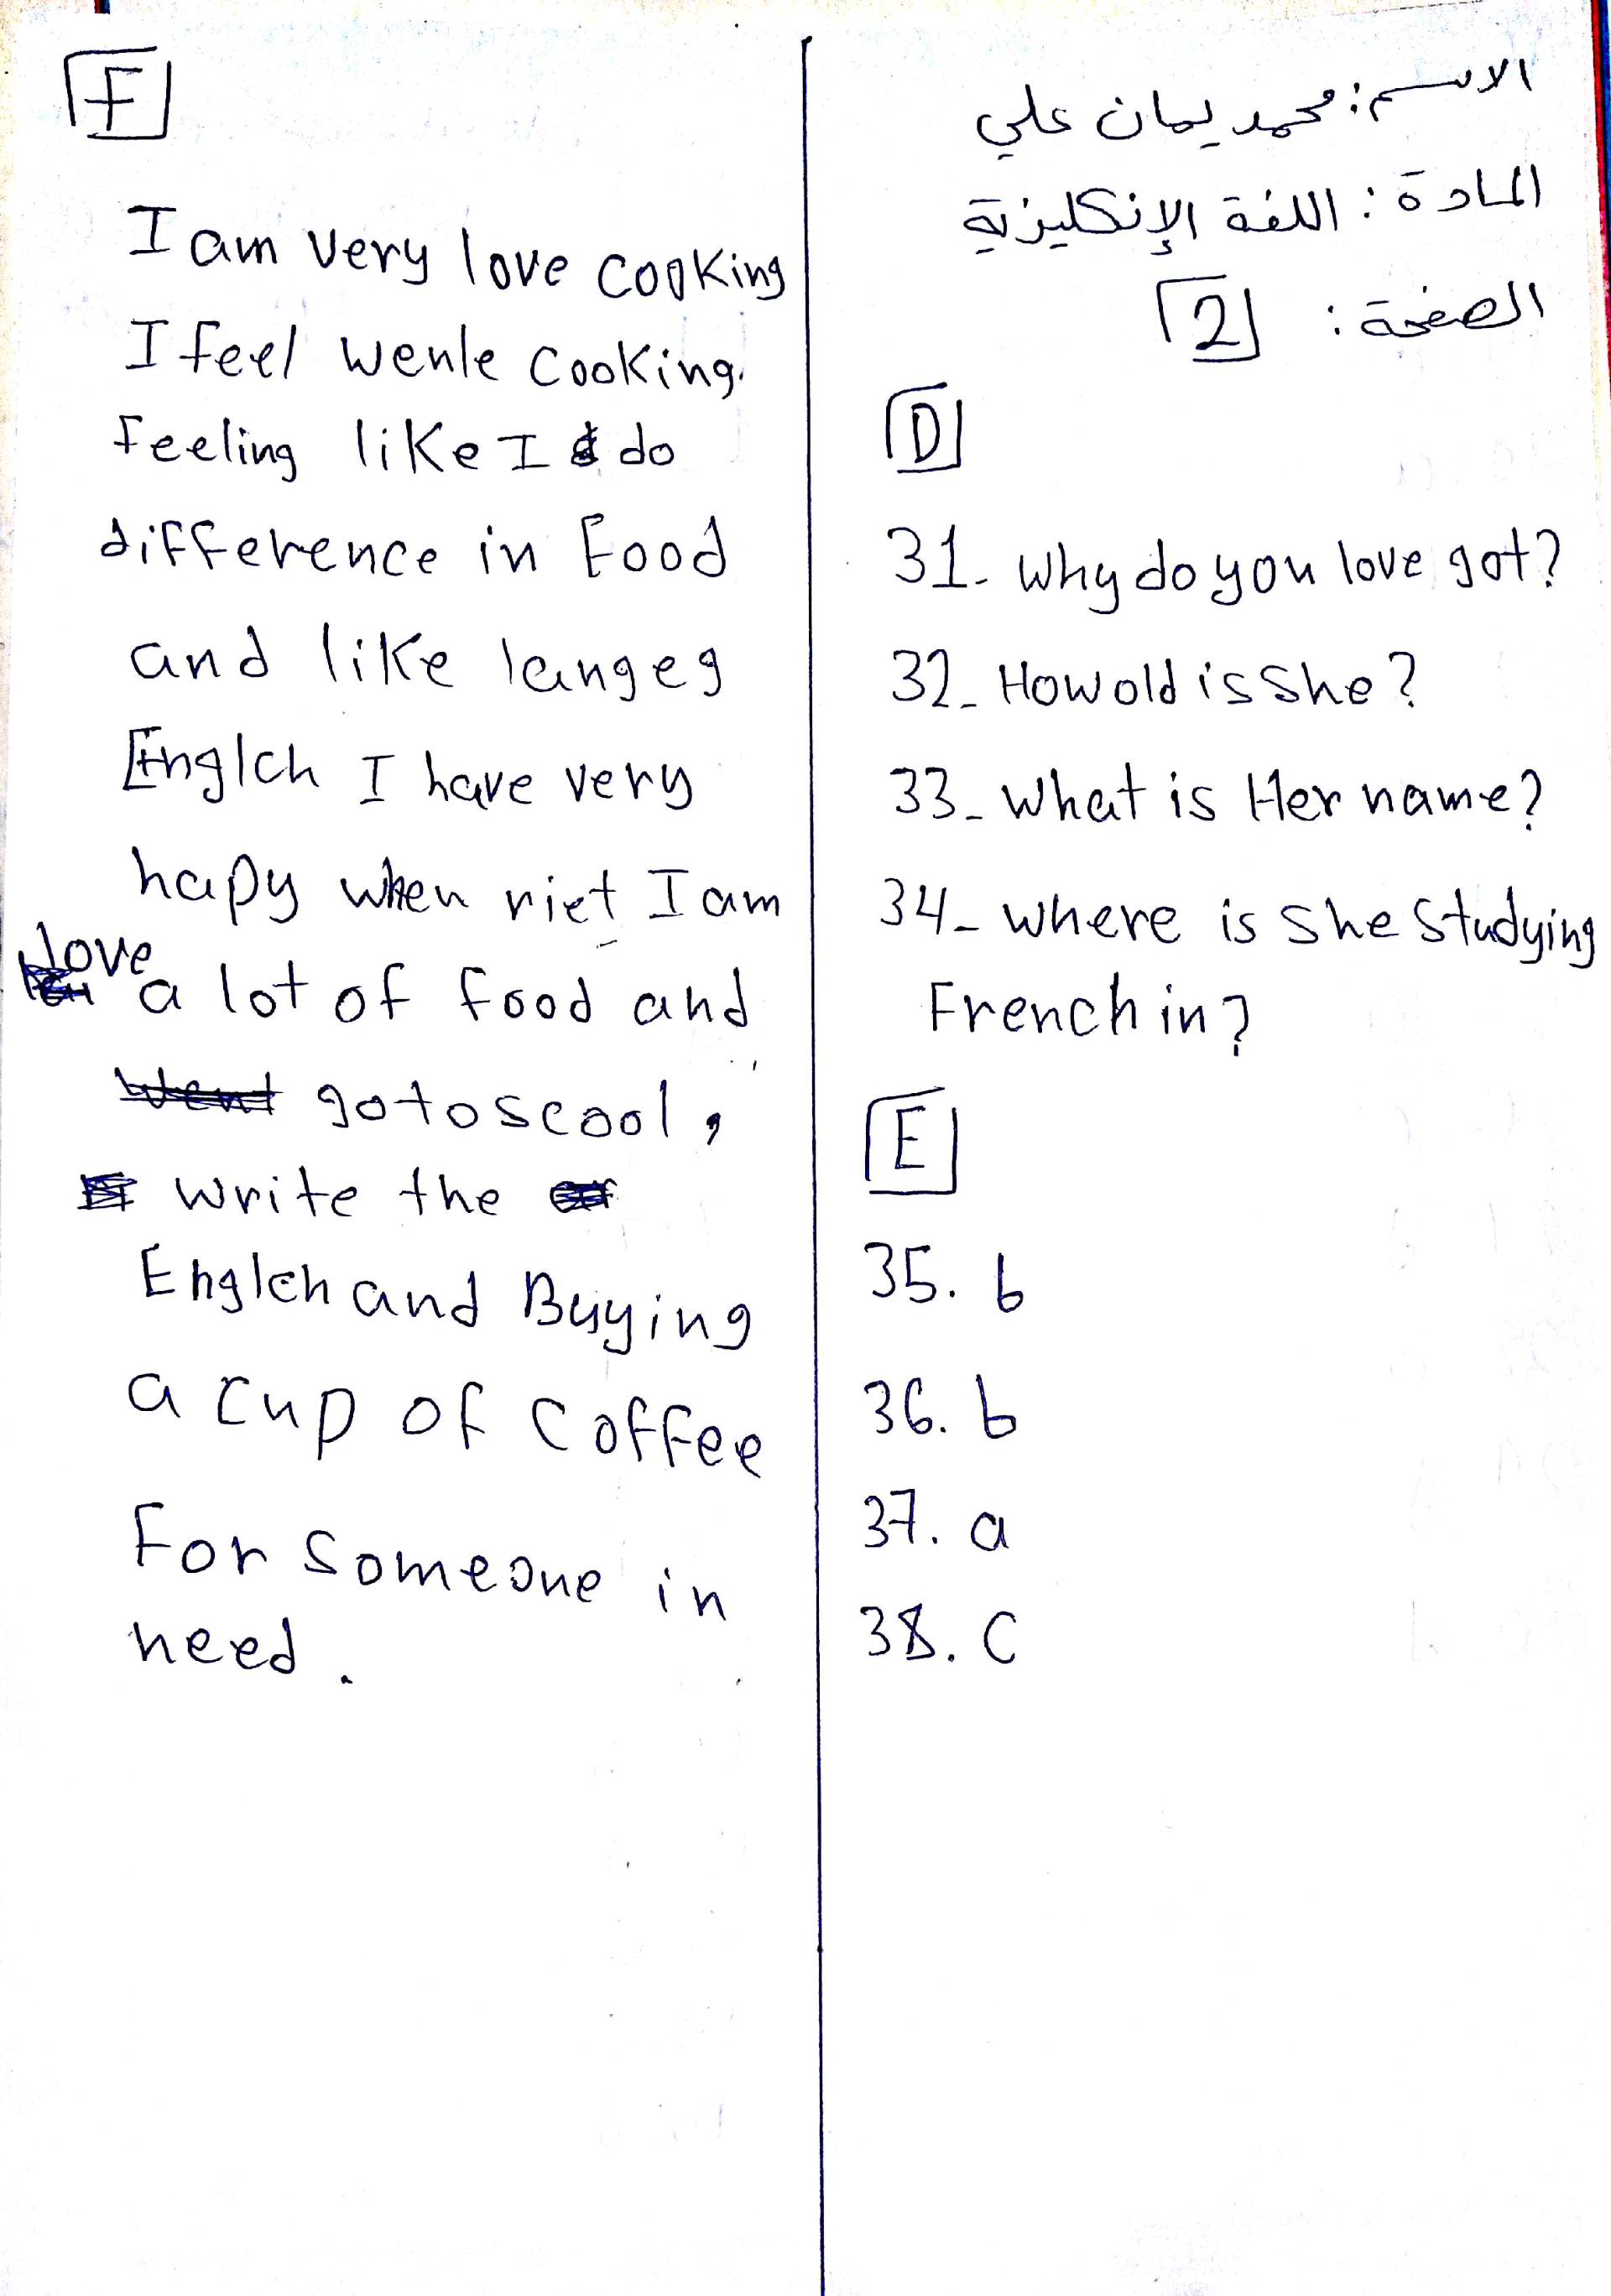 الاسم: محمد يمان علي
المادة: اللغة الإنكليزية
الصفحة: 2
D
31- Why do you love got?
32- How old is she?
33- What is Her name?
34- where is she studying
French in?
E
35. b
36. b
37. a
38. c
F
I am very love cooking
I feel wenle cooking.
Feeling like I do
difference in Food
and like langeg
Englch I have very
hapy when riet I am
love a lot of food and
went go to scool,
write the
Englch and Buying
a cup of coffee
For someone in
need.